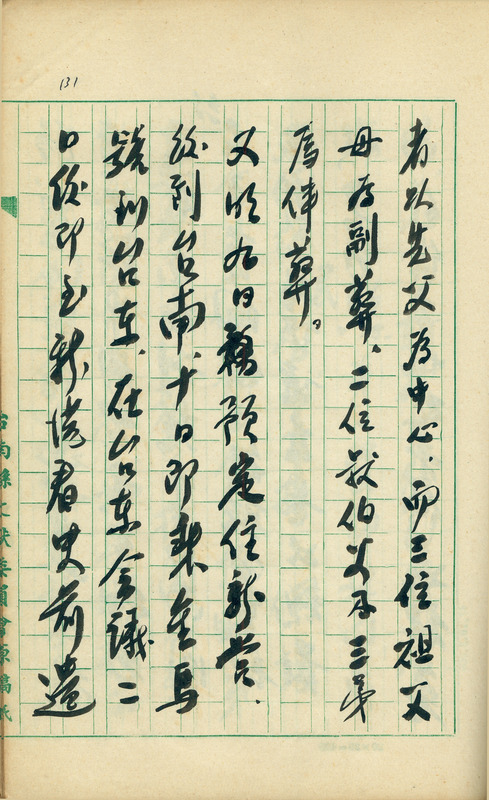 131
者以先父為中心，而三位祖父
母為副葬、二位叔伯父及三弟
為伴葬。
又次九日稿預定住新營．
後到台南，十日即乘金馬
號到台東、在台東会議二
口後即至新港看史前遺
台南縣文献委員會原稿紙